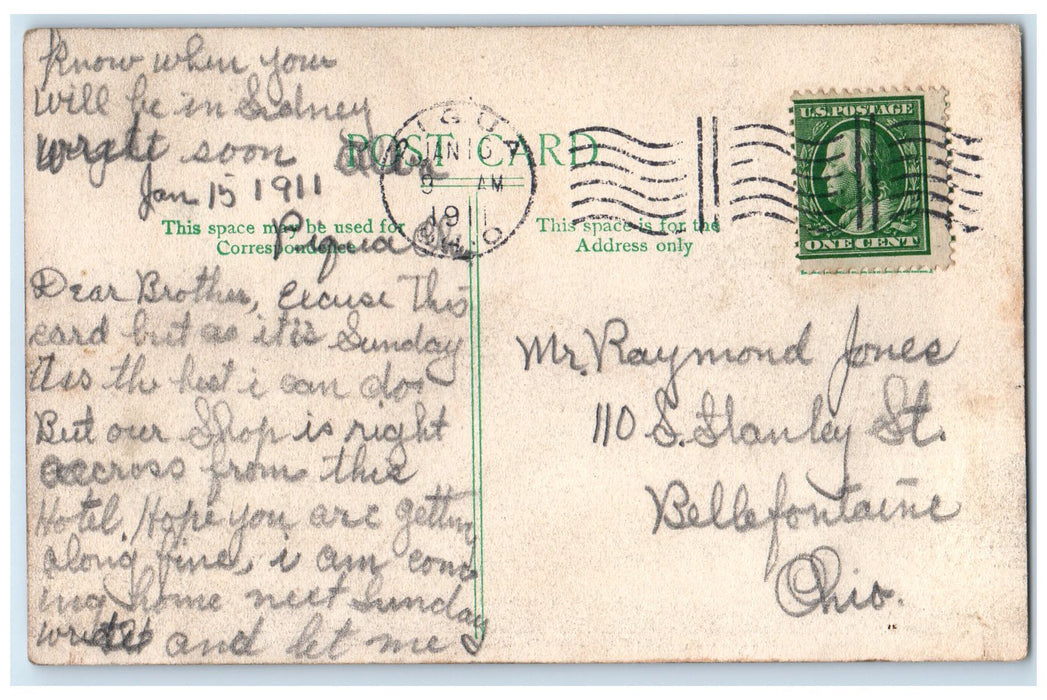 know when your
will be in Sidney
wright soon
POST CARD
Jan 15 1911
This space may be used for
Correspondence
Piqua
PIQUA
JAN 16
8 AM
1911
U.S. POSTAGE
ONE CENT
This space is for the
Address only
Dear Brother, excuse this
card but as it is Sunday
its the best i can do.
But our Shop is right
accross from this
Hotel. Hope you are getting
along fine, i am com
ing home next Sunday
write and let me
Mr. Raymond Jones
110 S. Stanley St.
Bellefontaine
Ohio.